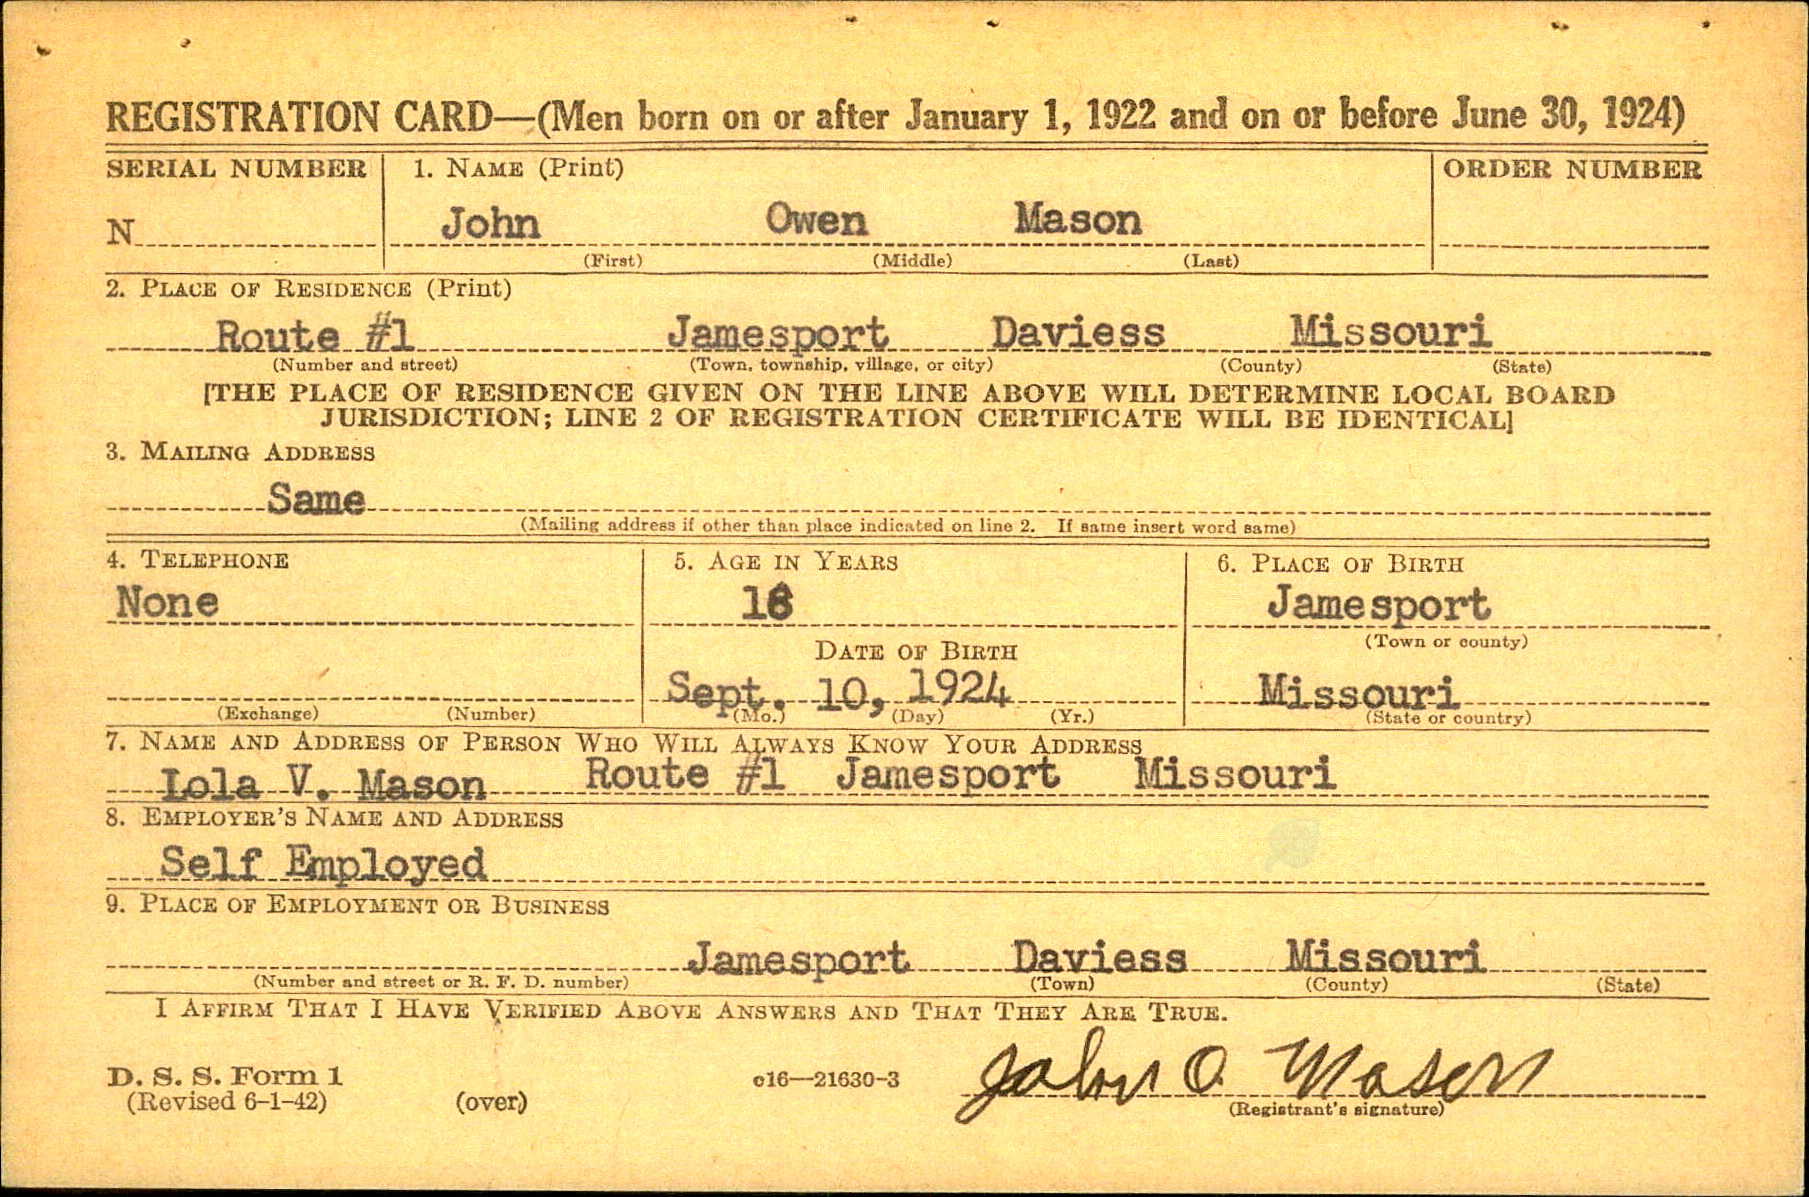 REGISTRATION CARD—(Men born on or after January 1, 1922 and on or before June 30, 1924)
SERIAL NUMBER 1. NAME (Print) ORDER NUMBER
N John Owen Mason
(First) (Middle) (Last)
2. PLACE OF RESIDENCE (Print)
Route #1 Jamesport Daviess Missouri
(Number and street) (Town, township, village, or city) (County) (State)
[THE PLACE OF RESIDENCE GIVEN ON THE LINE ABOVE WILL DETERMINE LOCAL BOARD
JURISDICTION; LINE 2 OF REGISTRATION CERTIFICATE WILL BE IDENTICAL]
3. MAILING ADDRESS
Same
(Mailing address if other than place indicated on line 2. If same insert word same)
4. TELEPHONE 5. AGE IN YEARS 6. PLACE OF BIRTH
None 18 Jamesport
(Town or county)
DATE OF BIRTH
Sept. 10, 1924 Missouri
(Exchange) (Number) (Mo.) (Day) (Yr.) (State or country)
7. NAME AND ADDRESS OF PERSON WHO WILL ALWAYS KNOW YOUR ADDRESS
Lola V. Mason Route #1 Jamesport Missouri
8. EMPLOYER'S NAME AND ADDRESS
Self Employed
9. PLACE OF EMPLOYMENT OR BUSINESS
Jamesport Daviess Missouri
(Number and street or R. F. D. number) (Town) (County) (State)
I AFFIRM THAT I HAVE VERIFIED ABOVE ANSWERS AND THAT THEY ARE TRUE.
D. S. S. Form 1 c16—21630-3 John O. Mason
(Revised 6-1-42) (over) (Registrant's signature)